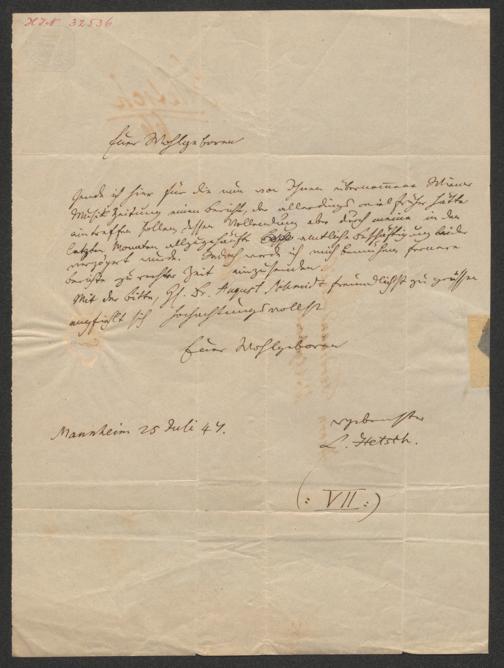 HIN 32536
Euer Wohlgeboren
sende ich hier für die nun von Ihnen übernommene Wiener
Musik Zeitung einen Bericht, der allerdings viel früher hätte
eintreffen sollen, dessen Vollendung aber durch meine in den
letzten Monaten allzugehäufte amtliche Beschäftigung leider
verzögert wurde. werde ich mich bemühen fernere
Berichte zu rechter Zeit einzusenden.
Mit der Bitte, H. Dr. August Schmidt freundlichst zu grüssen
empfiehlt sich hochachtungsvollst
Euer Wohlgeboren
Mannheim 25 Juli 47.
ergebenster
L. Hetsch.
(: VII :)